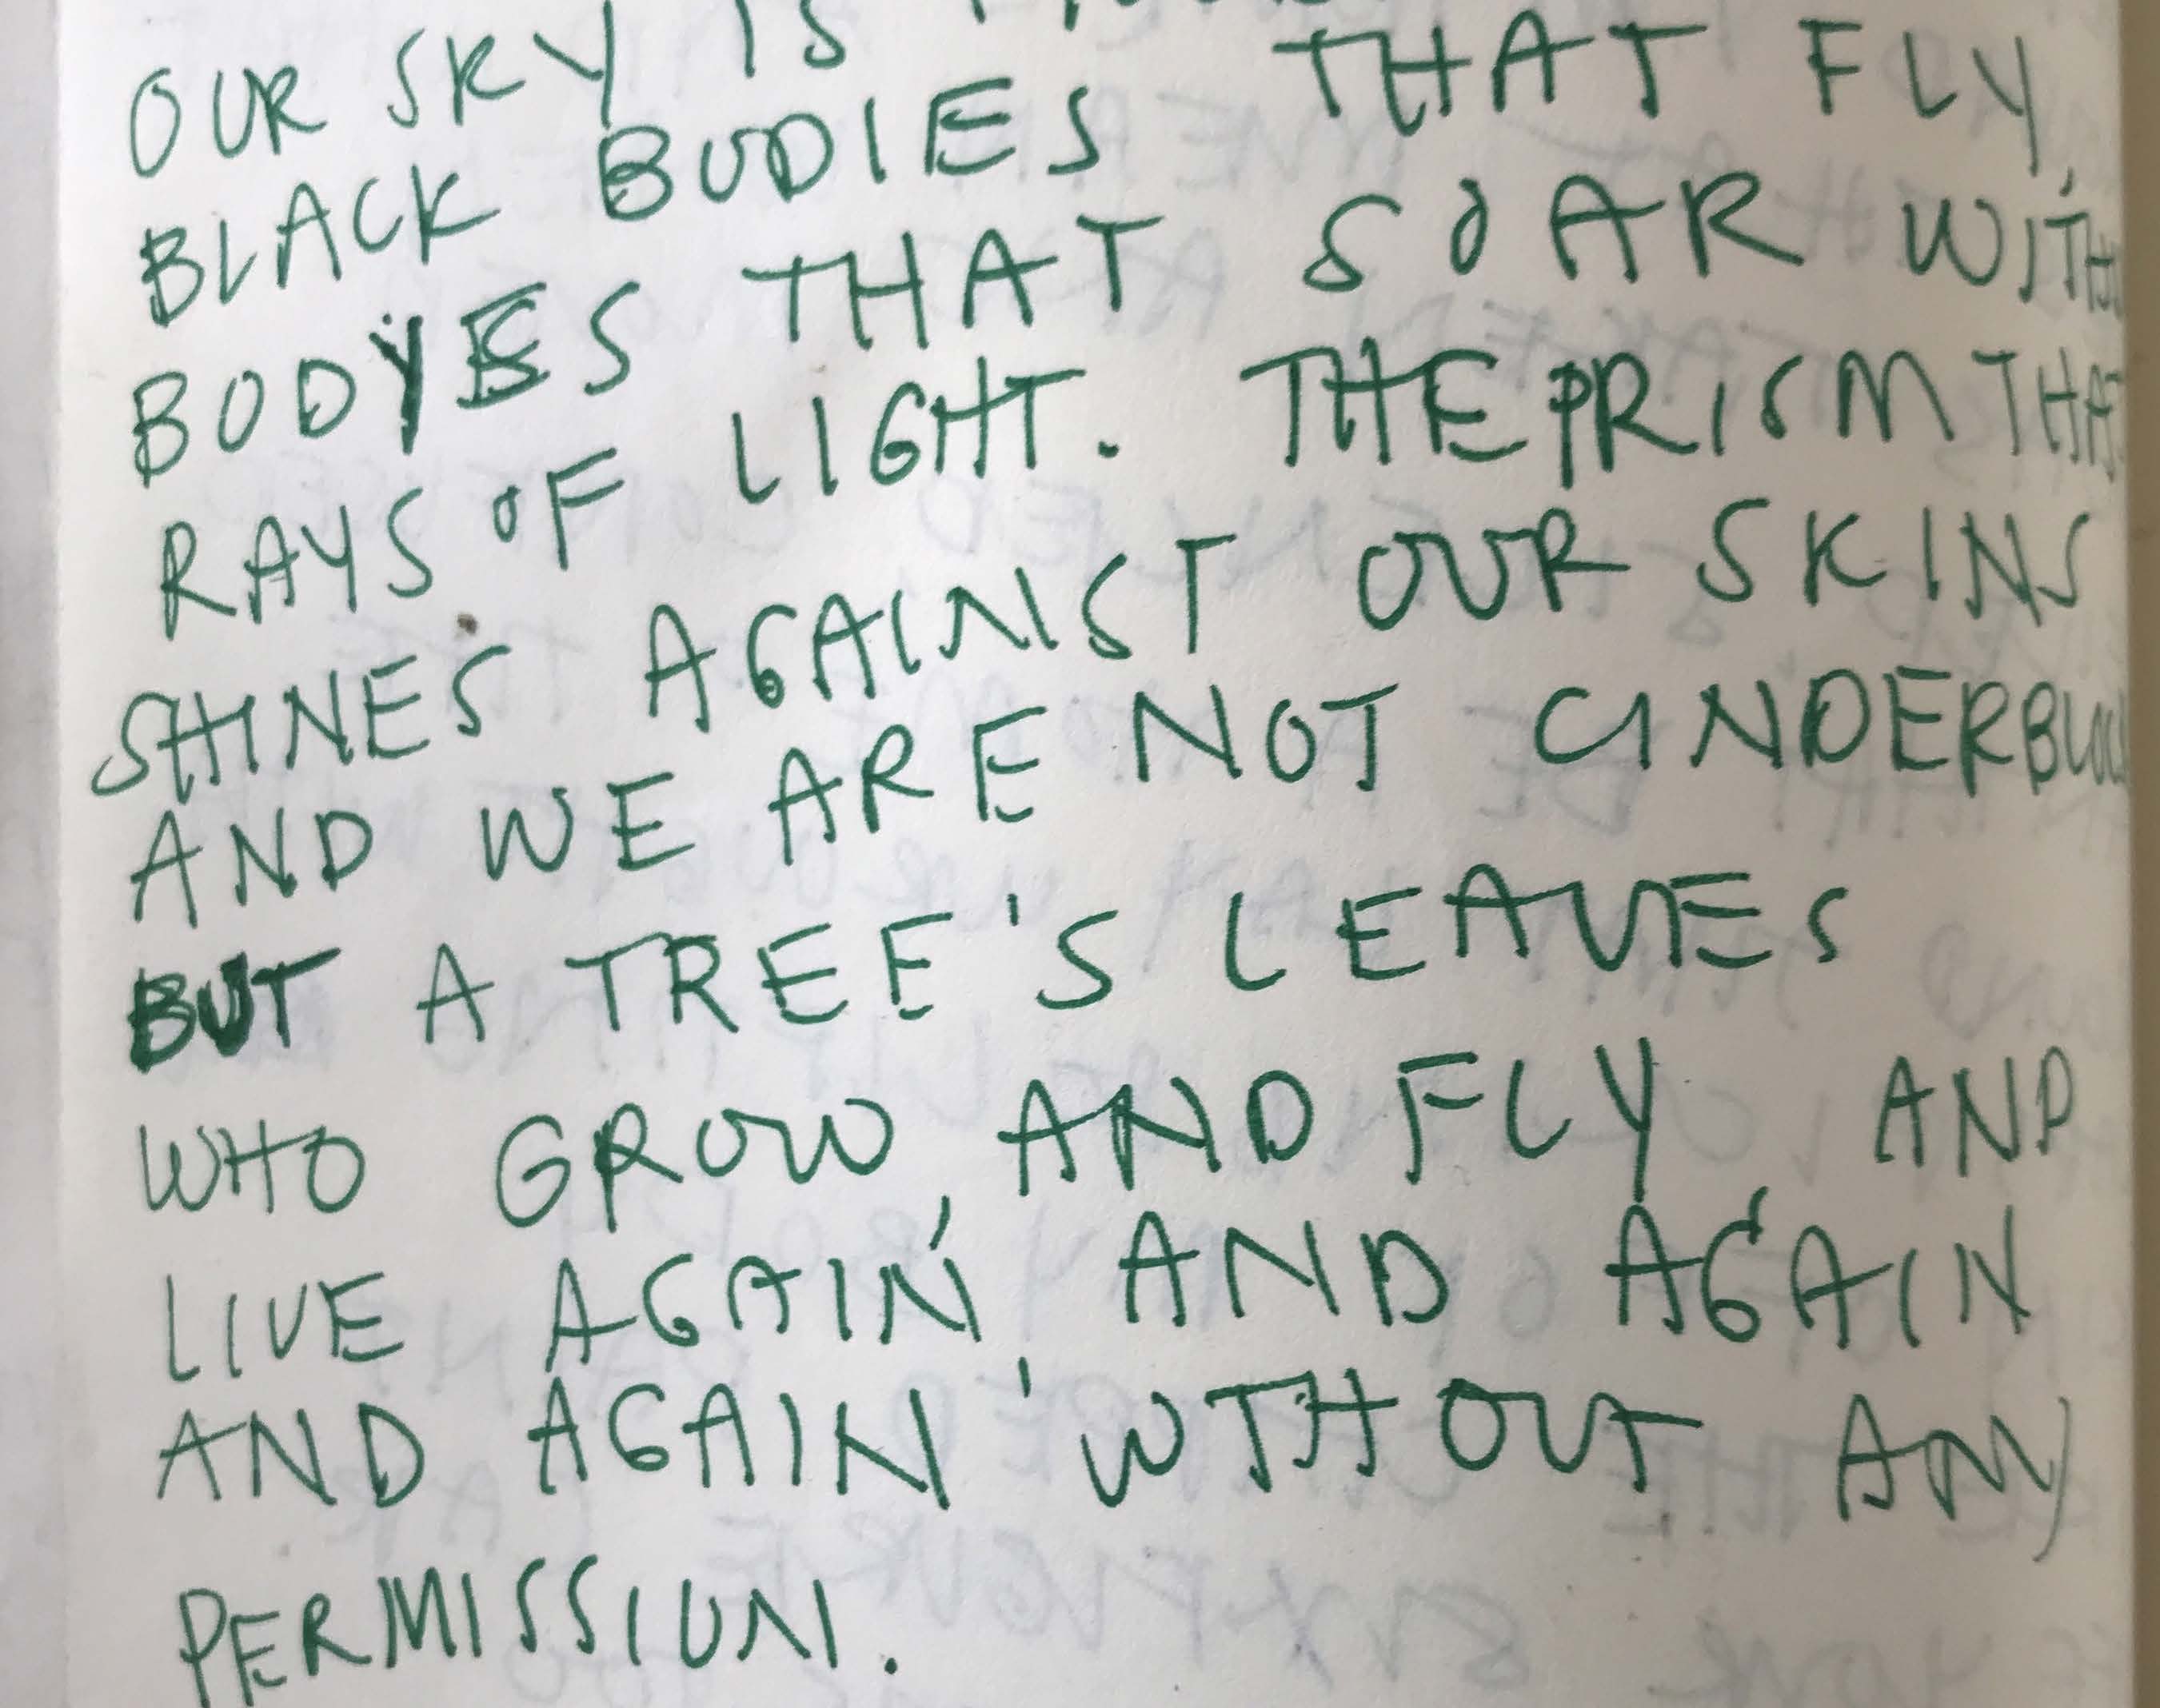 OUR SKY IS
BLACK BODIES THAT FLY,
BODYES THAT SOAR WITH
RAYS OF LIGHT. THE PRISM THAT
SHINES AGAINST OUR SKINS
AND WE ARE NOT CINDERBLOCK
BUT A TREE'S LEAVES
WHO GROW, AND FLY, AND
LIVE AGAIN, AND AGAIN
AND AGAIN' WTHOUT ANY
PERMISSION.